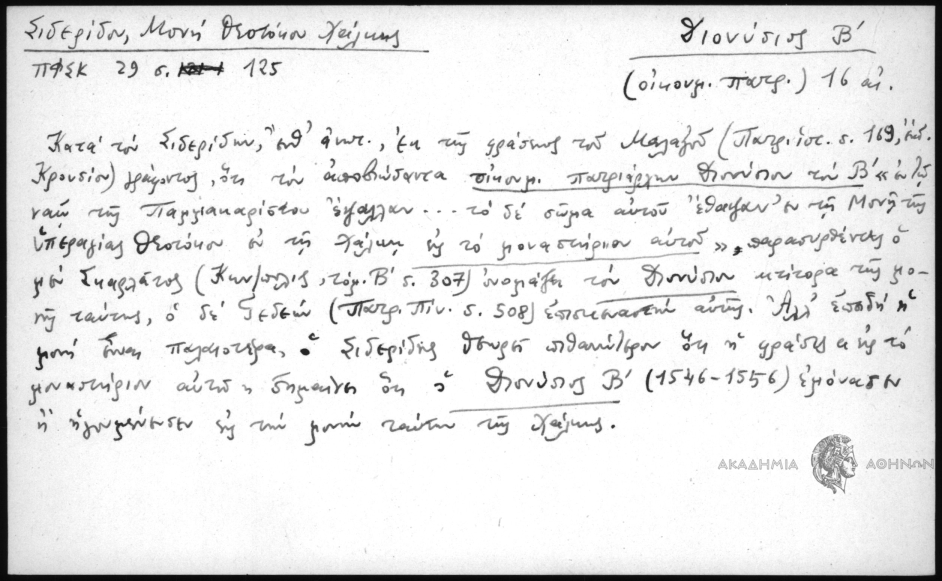 Σιδερίδου, Μονή Θεοτόκου Χάλκης
Διονύσιος Β'
ΠΦΣΚ 29 σ. 125
(οἰκουμ. πατρ.) 16 αἰ.
Κατά τόν Σιδερίδην, ἔνθ' ἀνωτ., ἐκ τῆς φράσεως τοῦ Μαλαξοῦ (Πατρ. ἱστ. σ. 169, ἐκδ.
Κρουσίου) γράφοντος, ὅτι τόν ἀποβιώσαντα οἰκουμ. πατριάρχην Διονύσιον τόν Β' «ἐν τῷ
ναῷ τῆς Παμμακαρίστου ἔψαλλαν... τό δέ σῶμα αὐτοῦ ἔθαψαν ἐν τῇ Μονῇ τῆς
ὑπεραγίας Θεοτόκου ἐν τῇ Χάλκῃ εἰς τό μοναστήριον αὐτοῦ», παρασυρθέντες ὁ
μέν Σκαρλᾶτος (Κων/πολις, τόμ. Β' σ. 307) ὀνομάζει τόν Διονύσιον κτίτορα τῆς μο-
νῆς ταύτης, ὁ δέ Γεδεών (Πατρ. Πίν. σ. 508) ἐπισκευαστήν αὐτῆς. Ἀλλ' ἐπειδή ἡ
μονή εἶναι παλαιοτέρα, ὁ Σιδερίδης θεωρεῖ πιθανώτερον ὅτι ἡ φράσις «εἰς τό
μοναστήριον αὐτοῦ» σημαίνει ὅτι ὁ Διονύσιος Β' (1546-1556) ἐμόνασεν
ἤ ἡγουμένευσεν εἰς τήν μονήν ταύτην τῆς Χάλκης.
ΑΚΑΔΗΜΙΑ ΑΘΗΝΩΝ